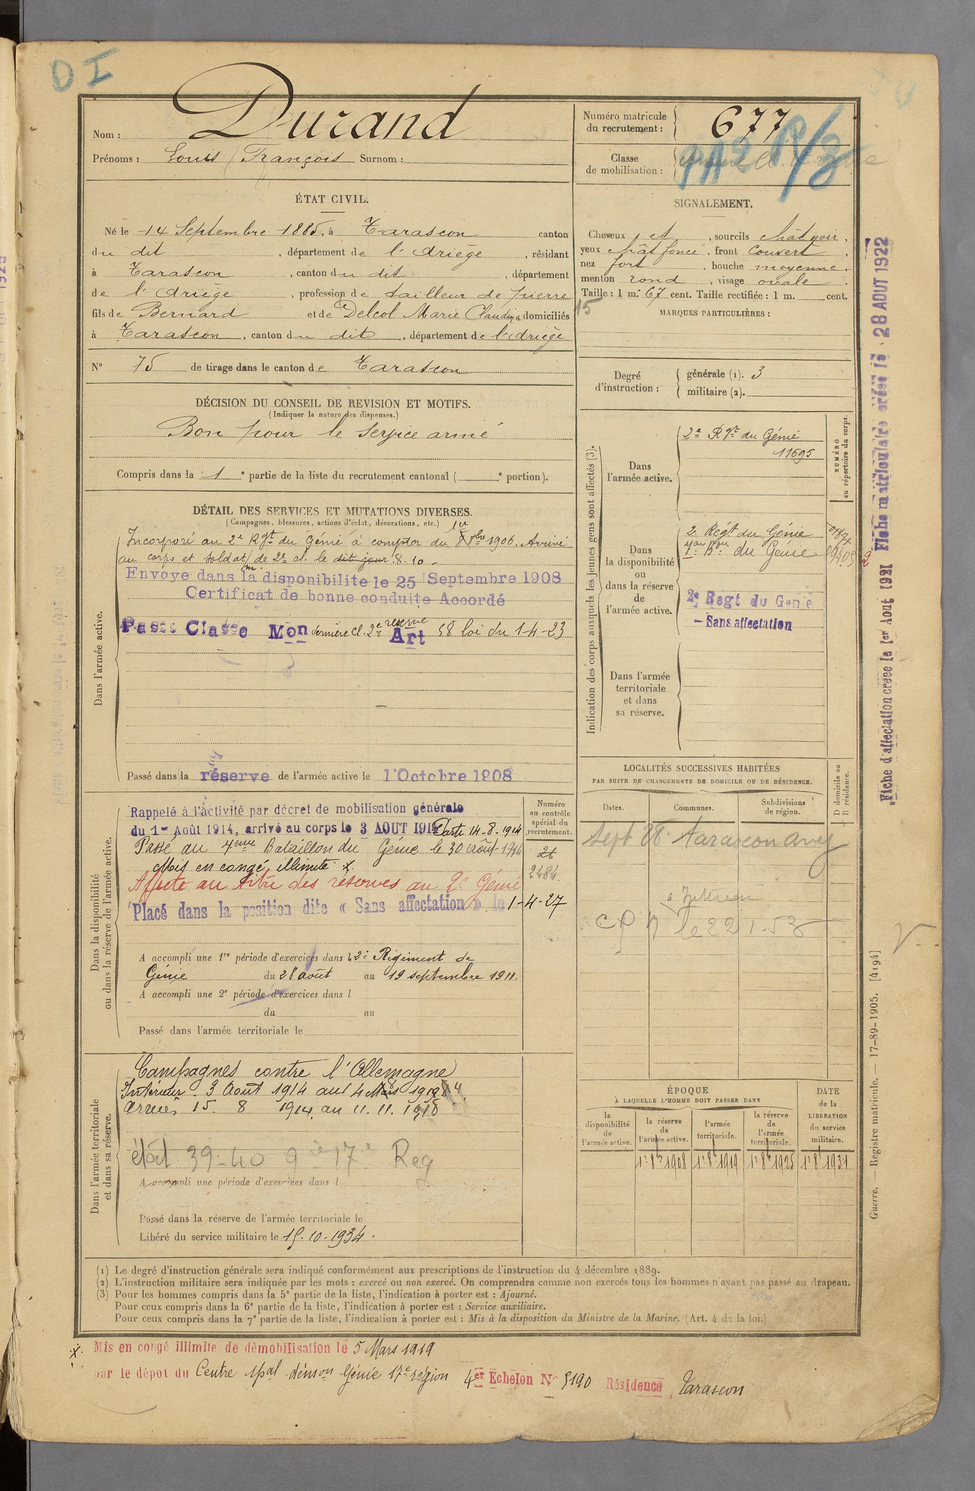 DI
Nom : Durand
Prénoms : Louis François Surnom :
Numéro matricule du recrutement : 677
Classe de mobilisation :
PA2 R/3
ÉTAT CIVIL.
Né le 14 Septembre 1885, à Tarascon canton
du dit, département de l'Ariège, résidant
à Tarascon, canton du dit, département
de l'Ariège, profession de tailleur de pierre
fils de Bernard et de Delcol Marie Claudine domiciliés
à Tarascon, canton du dit, département de l'Ariège
N° 75 de tirage dans le canton de Tarascon
DÉCISION DU CONSEIL DE REVISION ET MOTIFS.
(Indiquer la nature des dispenses.)
Bon pour le service armé
Compris dans la 1e partie de la liste du recrutement cantonal ( e portion).
SIGNALEMENT.
Cheveux et, sourcils chât noir,
yeux chât foncé, front couvert,
nez fort, bouche moyenne,
menton rond, visage ovale.
Taille : 1 m. 67 cent. Taille rectifiée : 1 m. cent.
15
MARQUES PARTICULIÈRES :
Degré d'instruction : générale (1). 3
militaire (2).
DÉTAIL DES SERVICES ET MUTATIONS DIVERSES.
(Campagnes, blessures, actions d'éclat, décorations, etc.)
Dans l'armée active.
Incorporé au 2e Rgt du Génie à compter du 8bre 1906. Arrivé
au corps et soldat de 2e cl. le dit jour 8.10.
Envoyé dans la disponibilité le 25 Septembre 1908
Certificat de bonne conduite Accordé
Passé Classe Mon dernière Cl. 2e réserve Art 58 loi du 1-4-23
Passé dans la réserve de l'armée active le 1 Octobre 1908
Dans la disponibilité ou dans la réserve de l'armée active.
Rappelé à l'activité par décret de mobilisation générale
du 1er Août 1914, arrivé au corps le 3 AOUT 191 Parti 14-8-1914
Passé au 7ème Bataillon du Génie le 30 août 1916
Mis en congé illimité x
Affecté au titre des réserves au 2e Génie
Placé dans la position dite « Sans affectation » le 1-4-27
Numéro au contrôle spécial du recrutement.
26
2484
A accompli une 1re période d'exercices dans le 2e Régiment de
Génie du 28 août au 19 septembre 1911.
A accompli une 2e période d'exercices dans l
du au
Passé dans l'armée territoriale le
Dans l'armée territoriale et dans sa réserve.
Campagnes contre l'Allemagne
Intérieur. 3 Août 1914 au
Armées 15. 8 1914 au 11.11.1918
état 39-40 9 17e Reg
A accompli une période d'exercices dans l
Passé dans la réserve de l'armée territoriale le
Libéré du service militaire le 15-10-1934.
Indication des corps auxquels les jeunes gens sont affectés (3).
NUMÉRO au répertoire du corps.
Dans l'armée active.
2e Rgt du Génie
11695
Dans la disponibilité ou dans la réserve de l'armée active.
2e Régt du Génie
du Génie
2e Regt du Génie
– Sans affectation
Dans l'armée territoriale et dans sa réserve.
LOCALITÉS SUCCESSIVES HABITÉES
PAR SUITE DE CHANGEMENTS DE DOMICILE OU DE RÉSIDENCE.
Dates. Communes. Subdivisions de région. D domicile ou R résidence.
Sept 08 Tarascon
le 22 1-53
ÉPOQUE
À LAQUELLE L'HOMME DOIT PASSER DANS
DATE de la LIBÉRATION du service militaire.
la disponibilité de l'armée active. la réserve de l'armée active. l'armée territoriale. la réserve de l'armée territoriale.
1r 8bre 1908 1r 8bre 1919 1r 8bre 1925 1r 8bre 1931
Fiche d'affectation créée le 1er Août 1921 Fiche matriculaire créée le 28 AOUT 1922
Guerre. — Registre matricule. — 17-89-1905. [4194]
(1) Le degré d'instruction générale sera indiqué conformément aux prescriptions de l'instruction du 4 décembre 1889.
(2) L'instruction militaire sera indiquée par les mots : exercé ou non exercé. On comprendra comme non exercés tous les hommes n'ayant pas passé au drapeau.
(3) Pour les hommes compris dans la 5e partie de la liste, l'indication à porter est : Ajourné.
Pour ceux compris dans la 6e partie de la liste, l'indication à porter est : Service auxiliaire.
Pour ceux compris dans la 7e partie de la liste, l'indication à porter est : Mis à la disposition du Ministre de la Marine. (Art. 4 de la loi.)
x Mis en congé illimité de démobilisation le 5 Mars 1919
par le dépôt du Centre Génie 17e région 4er Echelon N° 5190 Résidence Tarascon